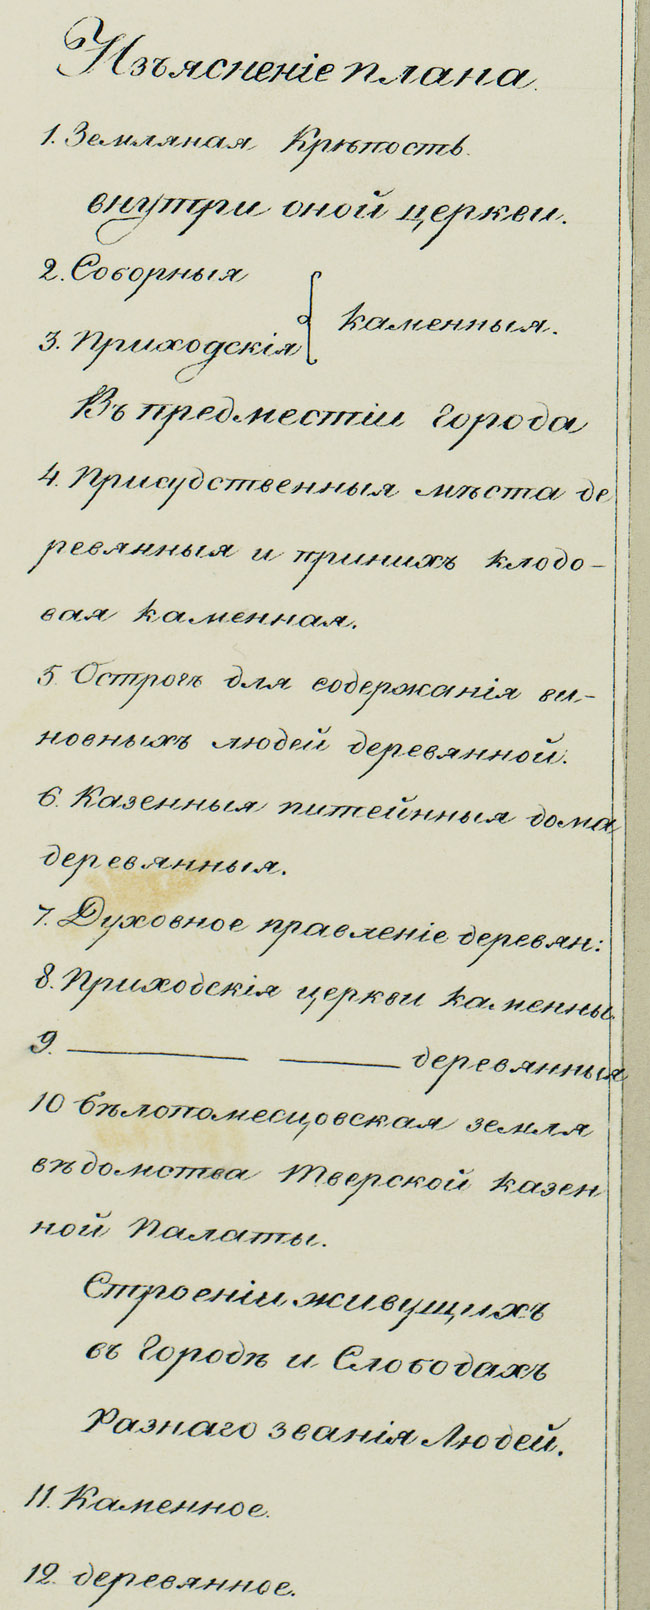 Изъясненіе плана.
1. Земляная Крѣпость.
внутри оной церкви.
2. Соборныя
3. Приходскія } каменныя.
Въ предместіи города
4. Присудственныя мѣста де
ревянныя и принихъ клодо-
вая каменная.
5. Острогъ для содержанія ви-
новныхъ людей деревянной.
6. Казенныя питейнныя дома
деревянныя.
7. Духовное правленіе деревян:
8. Приходскія церкви каменны
9. ——— ——— деревянныя
10 бѣлопомесцовская земля
вѣдомства Тверской казен
ной Палаты.
Строеніи живущихъ
въ Городѣ и Слободахъ
Разнаго званія Людей.
11. Каменное.
12. деревянное.